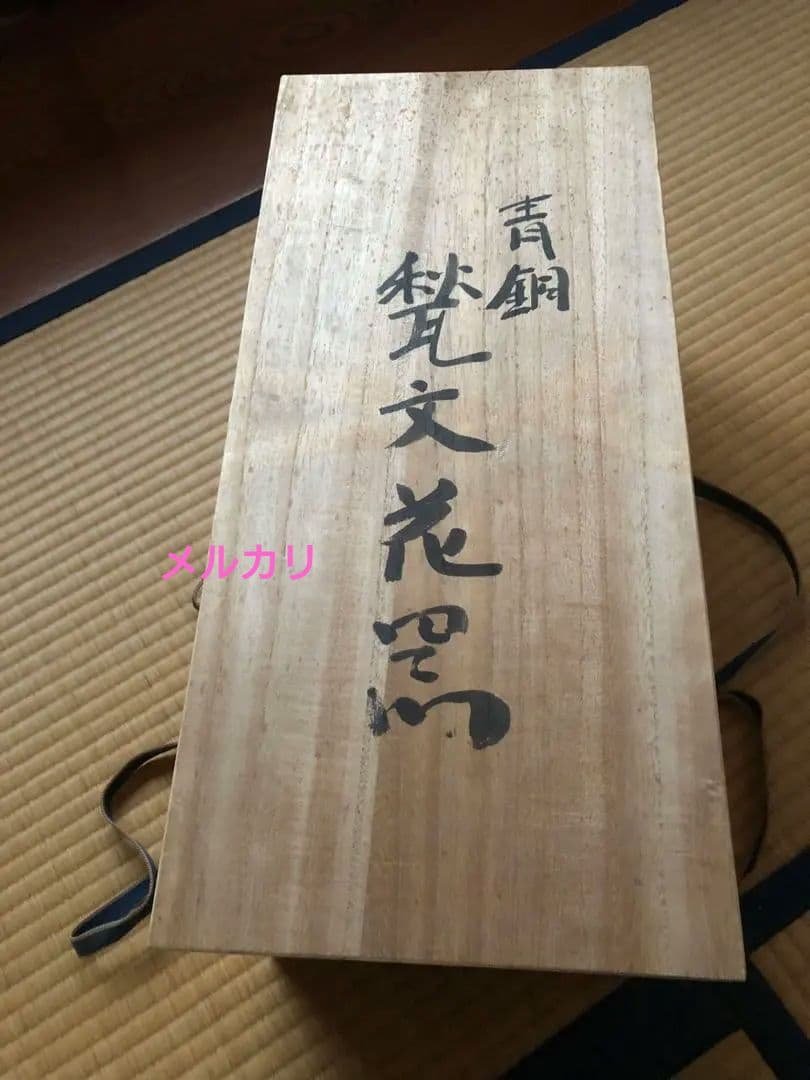 青銅
甃文花器
メルカリ